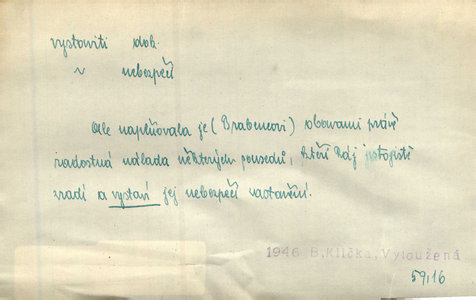 vystaviti dok.
~ nebezpečí
Ale naplňovala je (Brabencovi) obavami právě
radostná nálada některých sousedů, kteří Ráj
zradí a vystaví jej nebezpečí
1946 B.Klička, Vyloužená
59,16